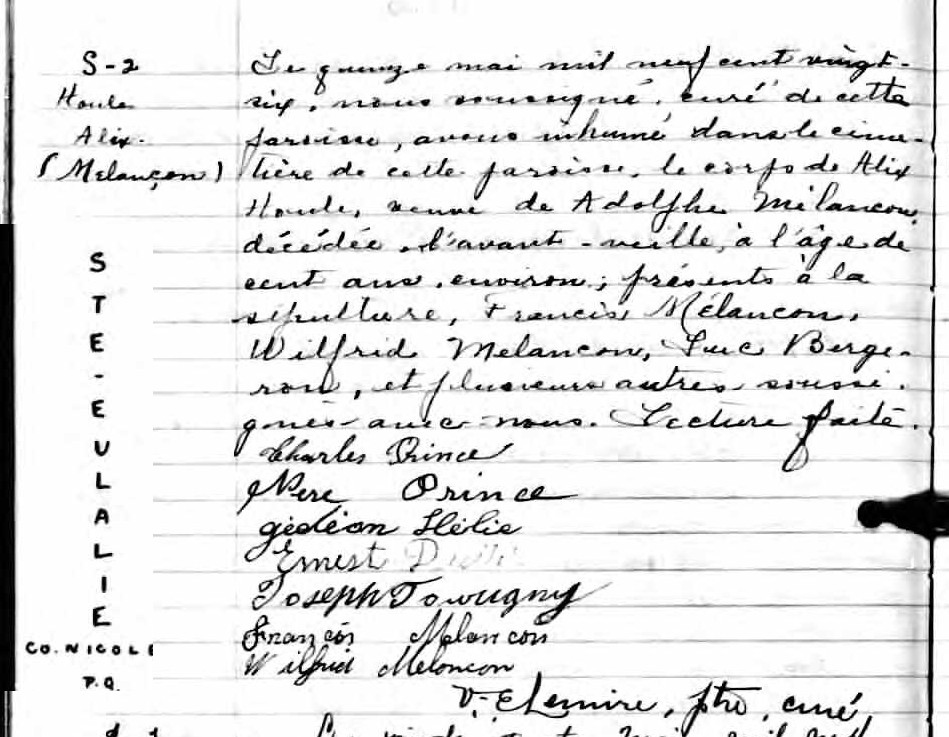 S-2
Houle
Alix.
(Melançon)
Le quinze mai mil neuf cent vingt-
six, nous soussigné, curé de cette
paroisse, avons inhumé dans le cime-
tière de cette paroisse, le corps de Alix
Houle, veuve de Adolphe Mélancon,
décédée l'avant-veille, à l'âge de
cent ans environ; présents à la
sépulture, Francis Mélancon,
Wilfrid Melancon, Luc Berge-
ron, et plusieurs autres soussi-
gnés avec nous. Lecture faite.
Charles Prince
Prince
gédéon Hélie
Ernest
Joseph Tourigny
François Melancon
Wilfrid Meloncon
V. E Lemire, ptre, curé
STE-EULALIE
CO. NICOLE
P.Q.